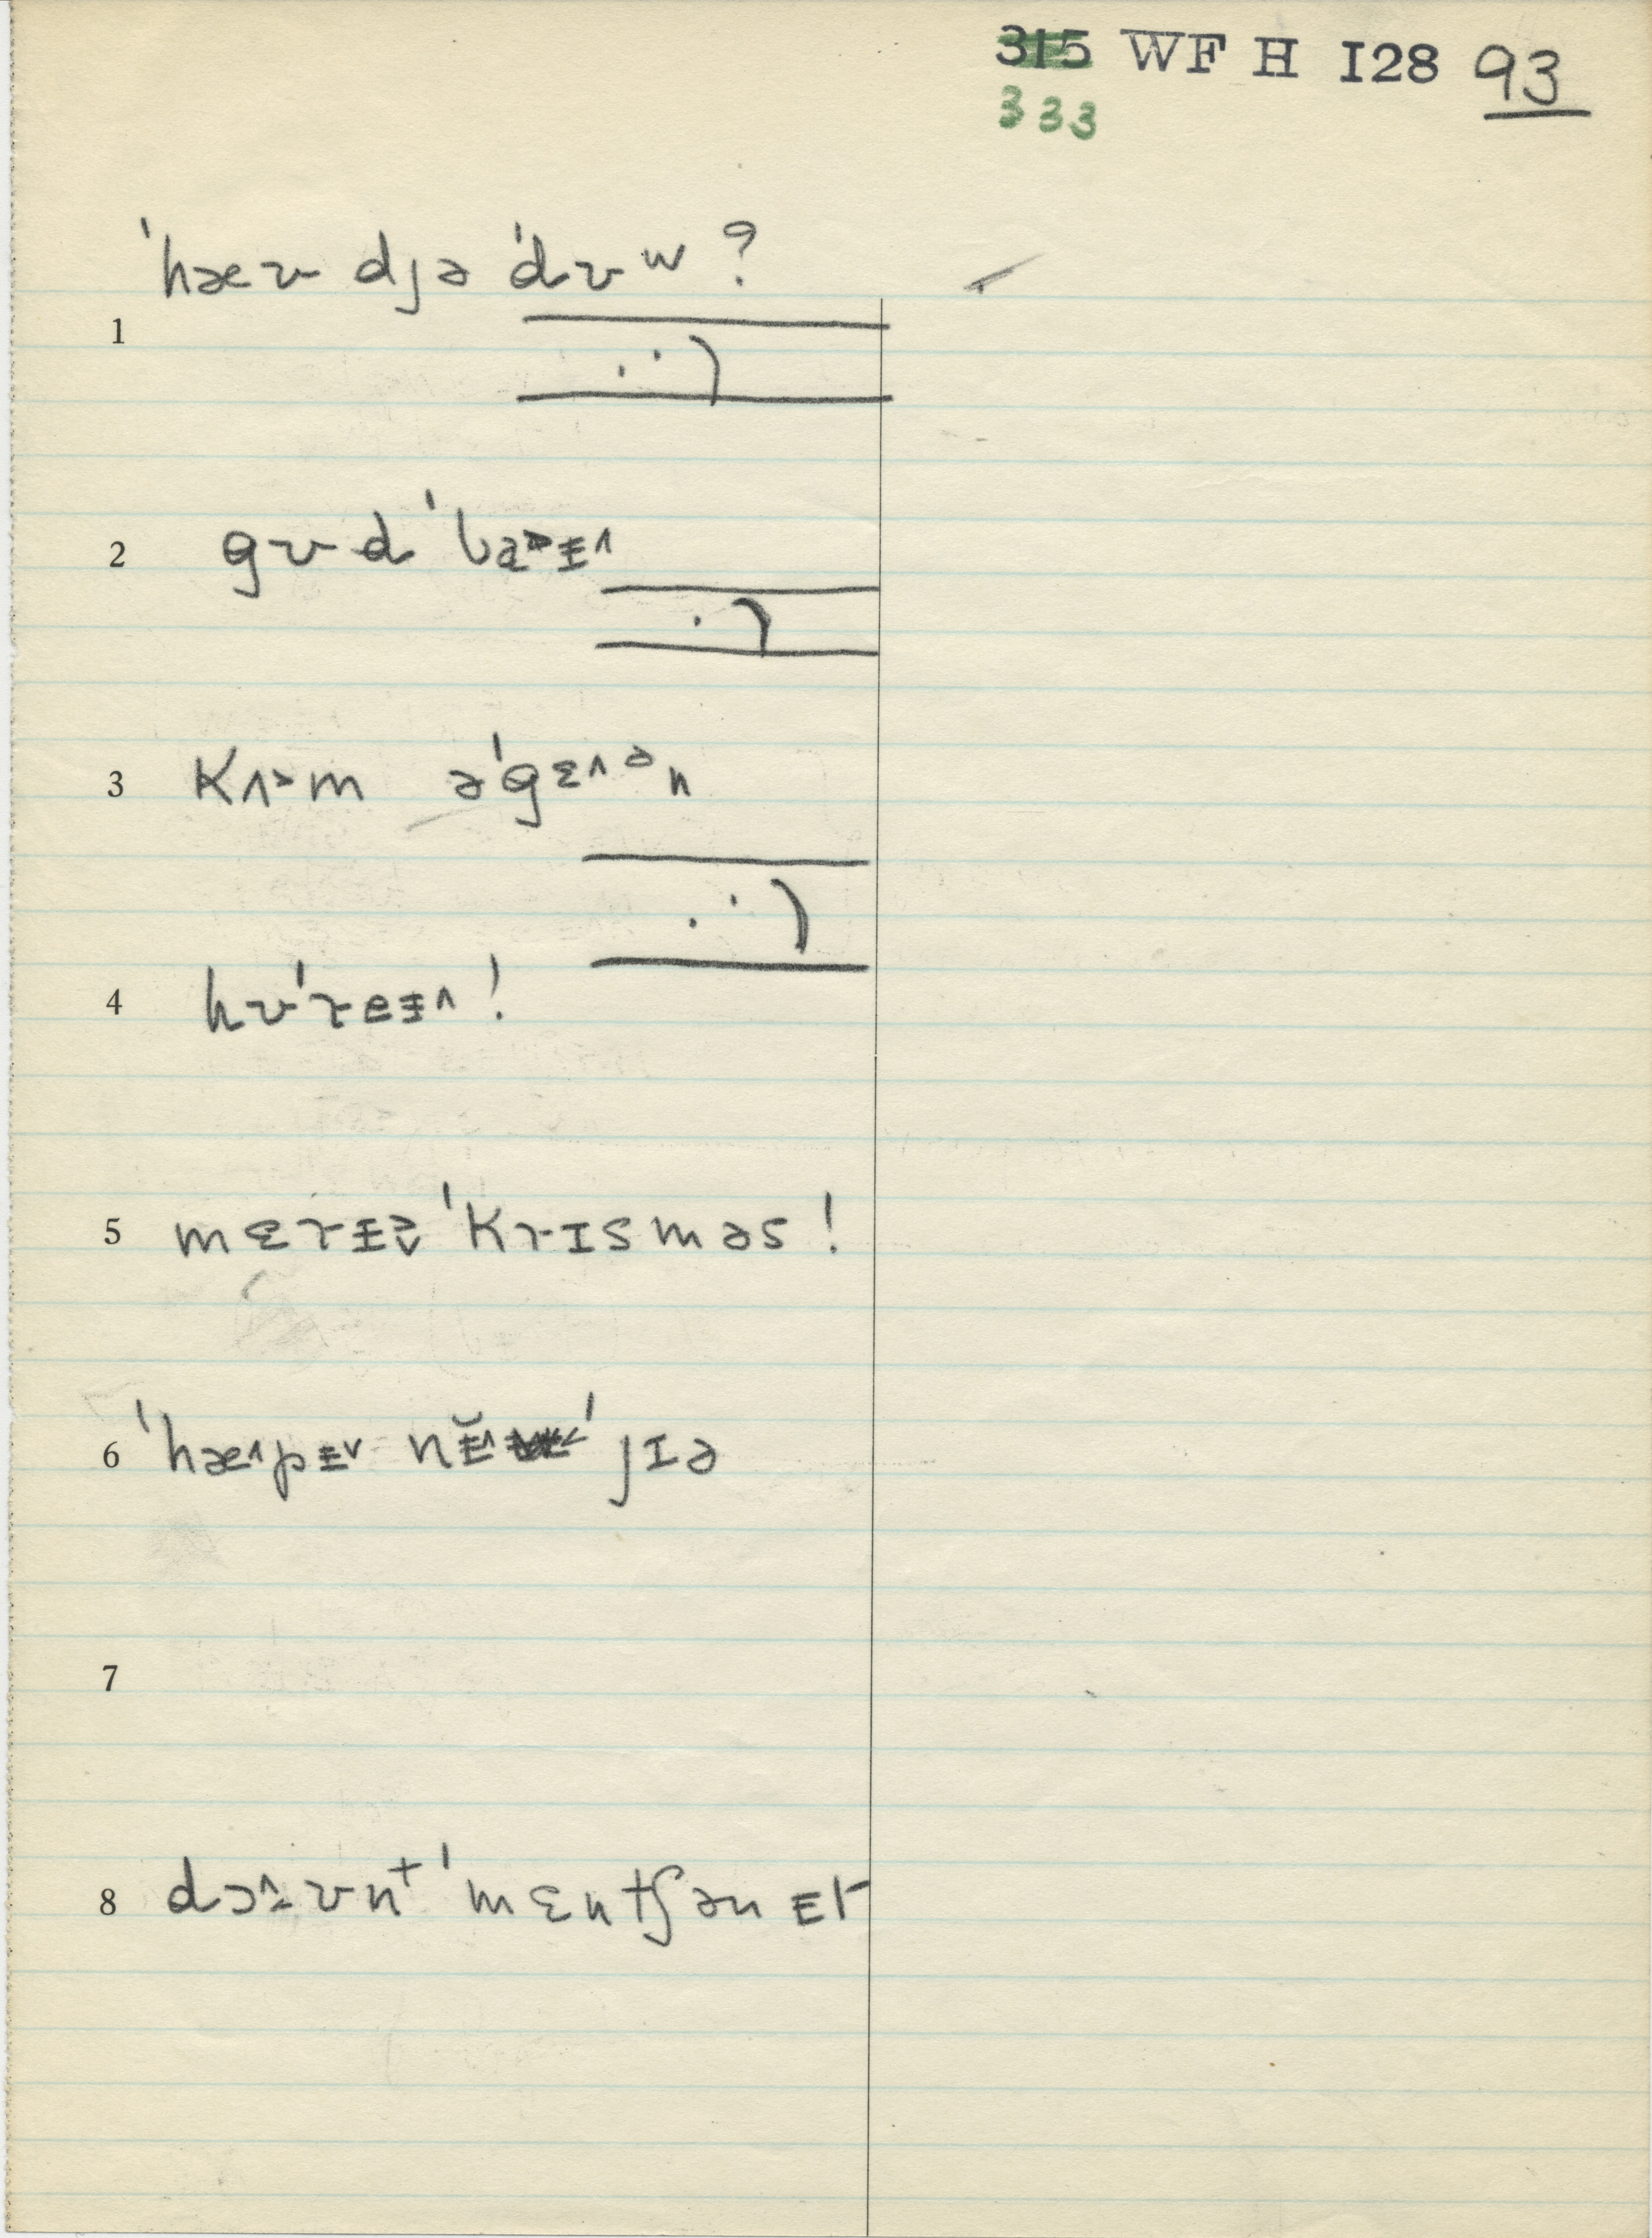 315 WF H I28 93
333
ˈhæʊ djə ˈdʊw?
1
2 gʊd ˈbɑ˃ɪ˄
3 kʌ˃m əˈgɛ˄ən
4 hʊˈreɪ˄!
5 mɛrɪ˅ ˈkrɪsməs!
6 ˈhæ˄pɪ˅ nɪ̆˄ ˈjɪə
7
8 dɔ˄ʊnt ˈmɛntʃən ɪt